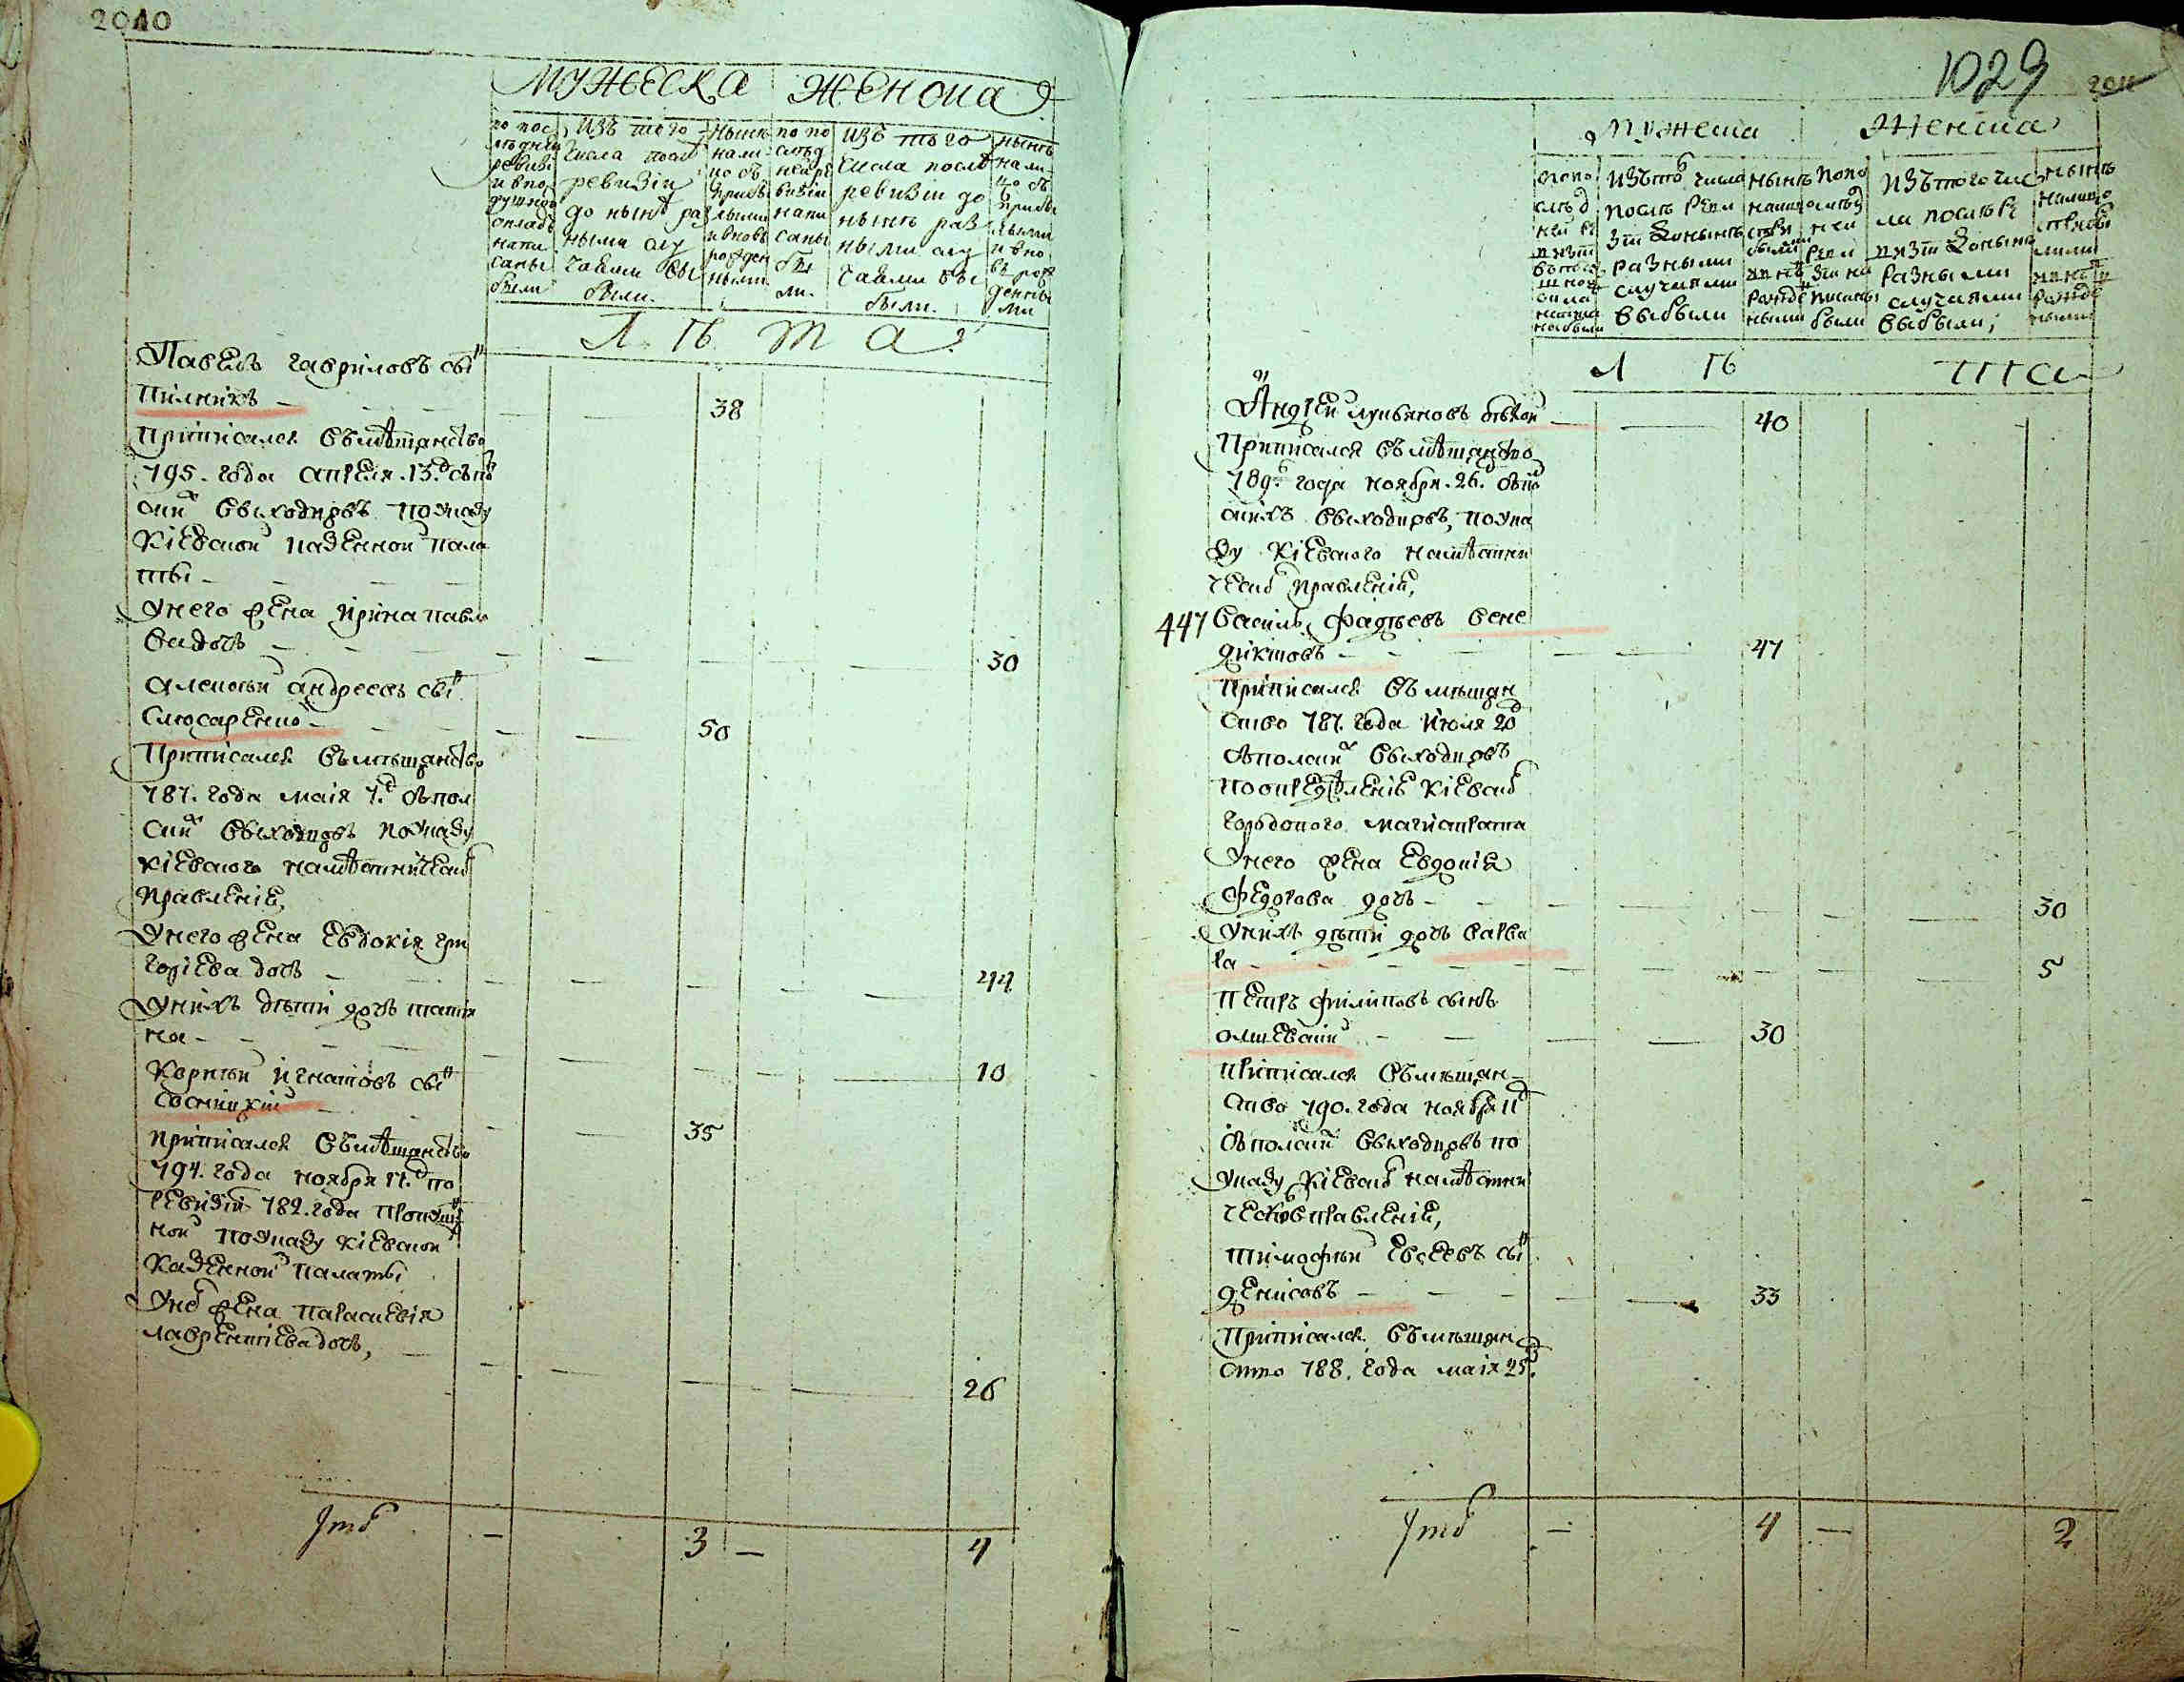 2040
Мужеска Женска
по пос
лѣдней
ревизі
и въ по
душной
окладъ
напи
саны
были
изъ того
числа послѣ
ревизіи
до нынѣ раз
ными слу
чаями вы
были.
нынѣ
нали
цо съ
прибы
лыми
и вновь
рожден
ными
по по
слѣд
ней ре
визіи
напи
саны
бы
ли.
изъ того
числа послѣ
ревизіи до
нынѣ раз
ными слу
чаями вы
были.
нынѣ
нали
цо съ
прибы
лыми
и вно
въ рож
денны
ми
Л ѣ т а
Павелъ Гавриловъ сынъ
Пилникъ — 38
Приписался въ мѣщанство
795. года апреля. 13.д съ пол
ских выходцовъ по указу
Кіевской казенной пала
ты —
У него жена Ирина Павло
ва дочь — 30
Алексѣй Андреевъ сынъ
Слюсаренко — 50
Приписался въ мѣщанство
787. года маія 7.д съ пол
ских выходцовъ по указу
Кіевского намѣстническаго
правленія,
У него жена Евдокія Гри
горіева дочь — 44
У нихъ дѣти дочь Татія
на — 10
Корнѣй Игнатовъ сынъ
— 35
Приписался въ мѣщанство
794. года ноября 17.д по
ревизіи 782. года пропущен
ной по указу Кіевской
казенной палаты
У него жена Параскевія
Лаврентіева дочь, — 26
Ито — 3 — 4
1029
2041
Мужеска Женска
по по
слѣд
ней ре
визіи
въ поду
шной
оклад
написа
ны были
изъ того числа
послѣ реви
зіи до нынѣ
разными
случаями
выбыли
нынѣ
налицо
съ при
былыми
и вновь
рожде
нными
по по
слѣд
ней
реви
зіи на
писаны
были
изъ того чис
ла послѣ ре
визіи до нынѣ
разными
случаями
выбыли,
нынѣ
налицо
с прибы
лыми
и вновь
рожде
нными
Л ѣ та
Андрей Лукьяновъ — 40
Приписался въ мѣщанство
789. года ноября. 26. съ пол
скихъ выходцовъ, по ука
зу Кіевского намѣстни
ческаго правленія,
447 Василь Фадѣевъ Бене
диктовъ — 47
Приписался въ мѣщан
ство 787. года июля 20д
съ полских выходцовъ
по опредѣленію Кіевскаго
городоного магистрата
У него жена Евдокія
Федорова дочь — 30
У нихъ дѣти дочь Варва
ра — 5
Петръ Филиповъ сынъ
Олшевскій — 30
Приписался въ мѣщан-
ство 790. года ноября 11д
съ полских выходцовъ по
указу Кіевскаго намѣстни
ческого правленія,
Тимофѣй Евсеевъ сынъ
Денисовъ — 33
Приписался въ мѣщан
ство 788. года маія 25д.
Ито — 4 — 2